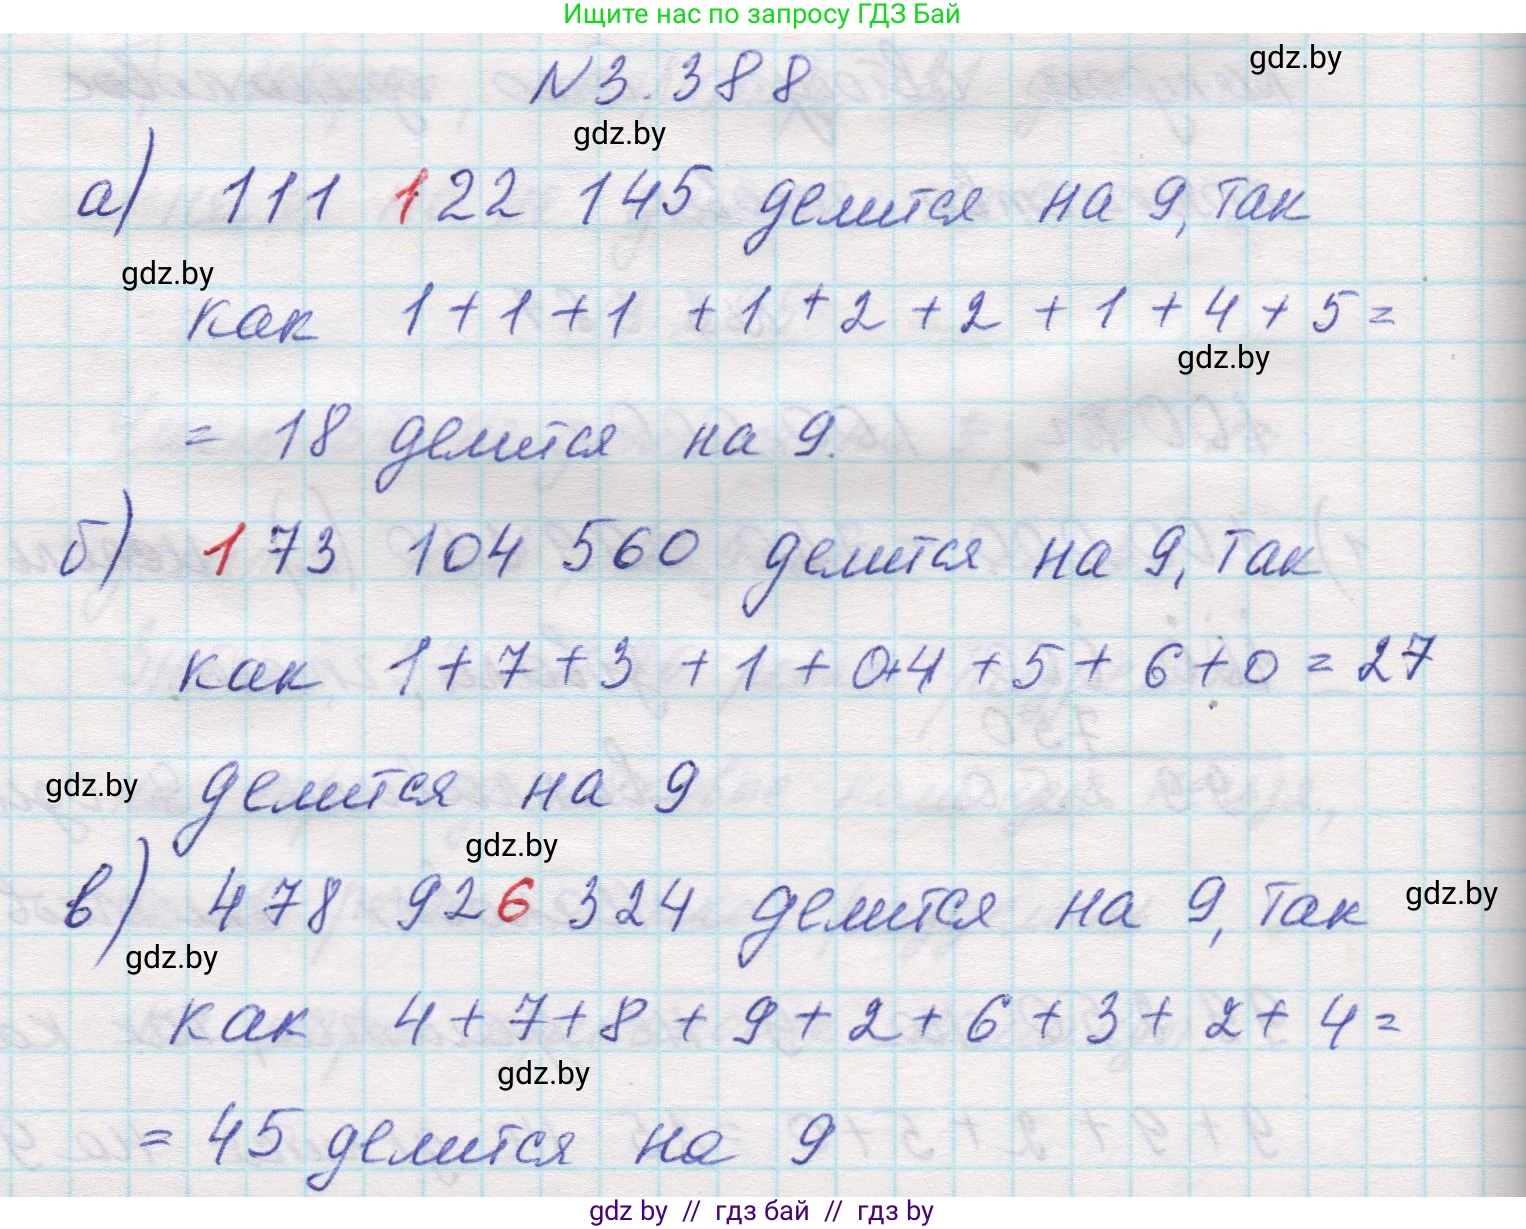 Ищите нас по запросу ГДЗ Бай
gdz.by
N3.388
gdz.by
а) 111 122 145 делится на 9, так
gdz.by
как 1+1+1+1+2+2+1+4+5=
gdz.by
= 18 делится на 9.
б) 173 104 560 делится на 9, так
как 1+7+3+1+0+4+5+6+0=27
gdz.by
делится на 9
gdz.by
в) 478 926 324 делится на 9, так
gdz.by
gdz.by
как 4+7+8+9+2+6+3+2+4=
gdz.by
= 45 делится на 9
gdz by // гдз бай // гдз by